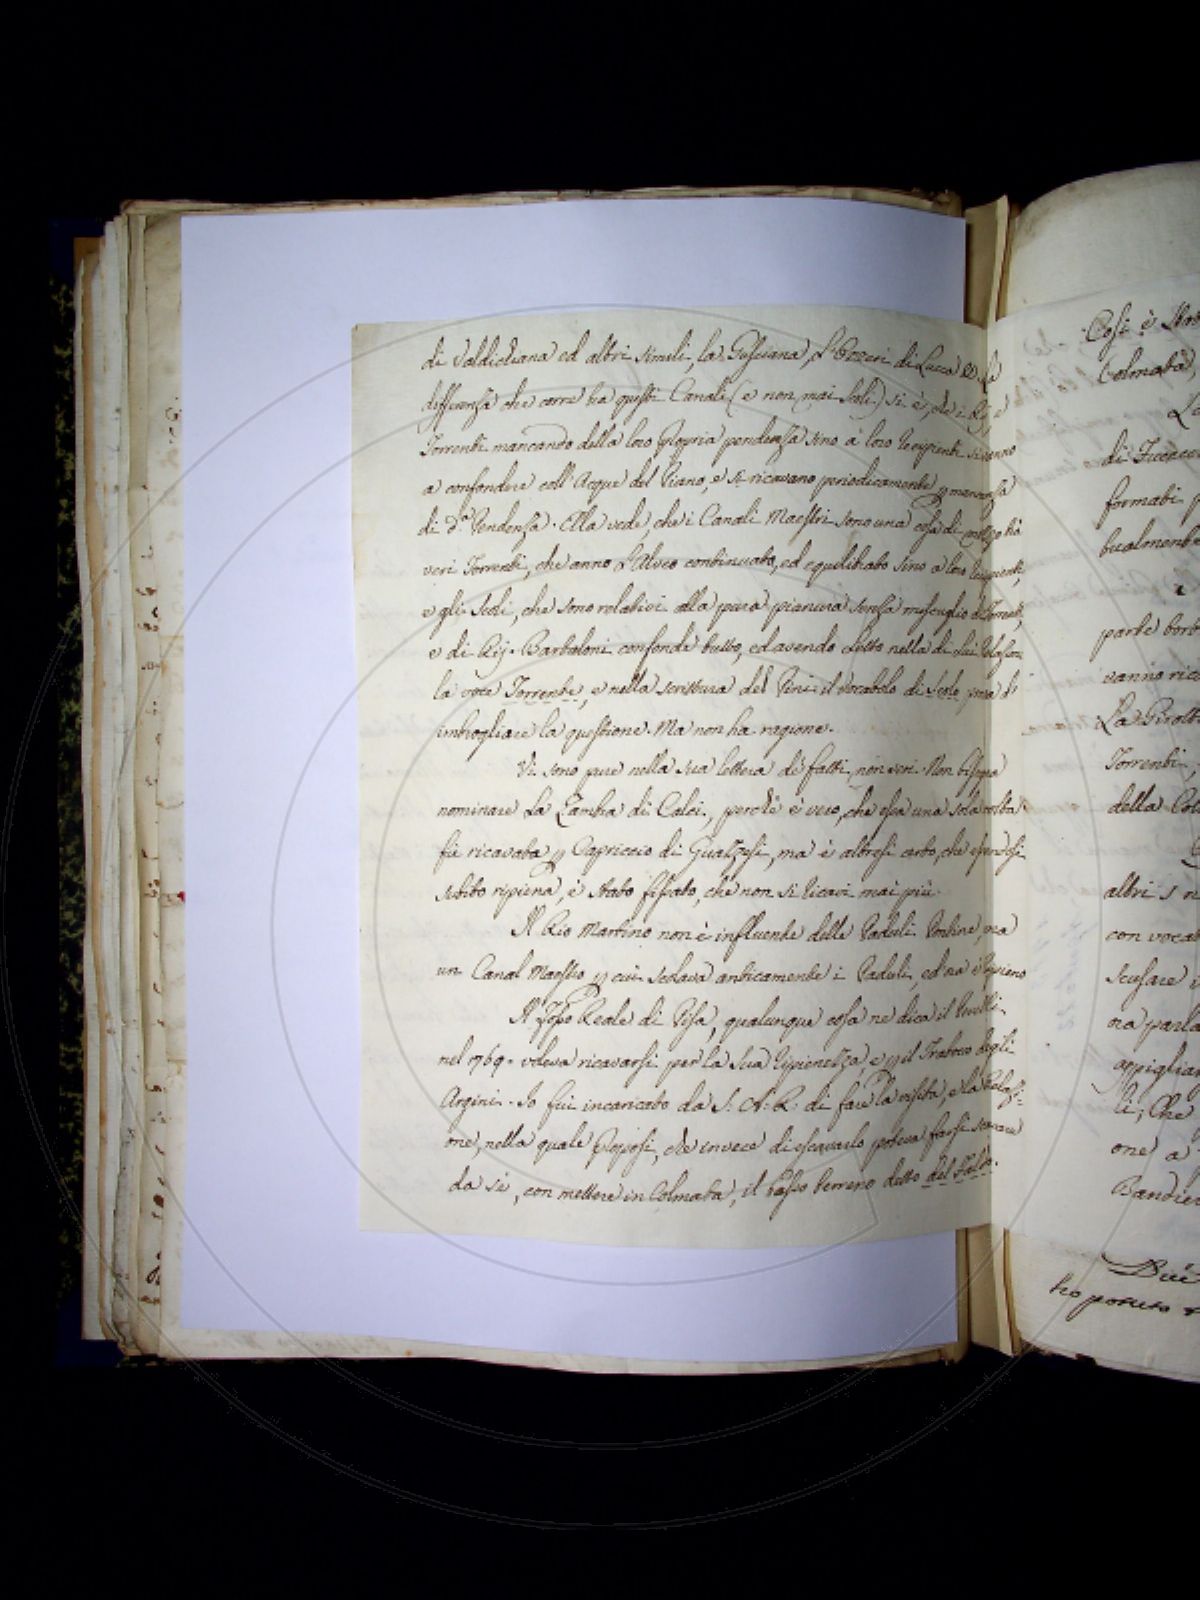 di Valdichiana ed altri simili, la Gusciana, l'Ozzeri di Lucca &c. La
differenza che corre tra questi Canali (e non mai Scoli) si è, che i Rij, e
Torrenti mancando della loro propria pendenza sino a' loro recipienti si vanno
a confondere coll'Acque del Piano, e si ricavano periodicamente p mancanza
di d.ª Pendenza. Ella vede, che i Canali Maestri sono una cosa di mezzo trà
veri Torrenti, che anno l'Alveo continuato, ed equilibrato sino a' loro recipienti,
e gli Scoli, che sono relativi alla pura pianura senza mescuglio di Torrenti,
e di Rij. Bartaloni confonde tutto, ed avendo letto nella di Lui Relazione
la voce Torrente, e nella scrittura del Pini il vocabolo di Scolo
imbrogliare la questione. Ma non ha ragione.
Vi sono pure nella sua lettera de' fatti non veri. Non bisogna
nominare La Zambra di Calci, perchè è vero, che essa una sola volta
fù ricavata p Capriccio di Gualzesi, ma è altresì certo, che essendosi
subito ripiena, è stato fissato, che non si ricavi mai più.
Il Rio Martino non è influente delle Paduli Pontine, ma
un Canal Maestro p cui scolava anticamente i Paduli, ed ora è ripieno
Il Fosso Reale di Pisa, qualunque cosa ne dica il
nel 1769. voleva ricavarsi per la sua ripienezza, e p il Trabocco degli
Argini. Io fui incaricato da S. A. R. di fare la visita, e la Relazi-
one, nella quale Proposi, che invece di escavarlo poteva farsi scavare
da sè, con mettere in Colmata, il basso terreno detto del
Così è
Colmata,
di Fucec
formati
tualmente
parte
vanno
La
Torrenti,
della
altri
con
scusare
ora
appiglia
li; Che
one a
Bandi
ho potuto